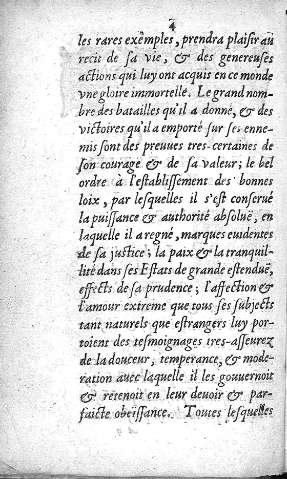 4
les rares exẽples, prendra plaisir au
recit de sa vie, & des genereuses
actions qui luy ont acquis en ce monde
vne gloire immortelle. Le grand nom-
bre des batailles qu'il a donné, & des
victoires qu'il a emporté sur ses enne-
mis sont des preuues tres-certaines de
son courage & de sa valeur; le bel
ordre à l'establissement des bonnes
loix, par lesquelles il s'est conserué
la puissance & authorité absoluë, en
laquelle il a regné, marques euidentes
de sa justice; la paix & la tranquil-
lité dans ses Estats de grande estenduë,
effects de sa prudence; l'affection &
l'amour extreme que tous ses subjects
tant naturels que estrangers luy por-
toient des tesmoignages tres-asseurez
de la douceur, temperance, & mode-
ration auec laquelle il les gouuernoit
& retenoit en leur deuoir & par-
faicte obeïssance. Toutes lesquelles